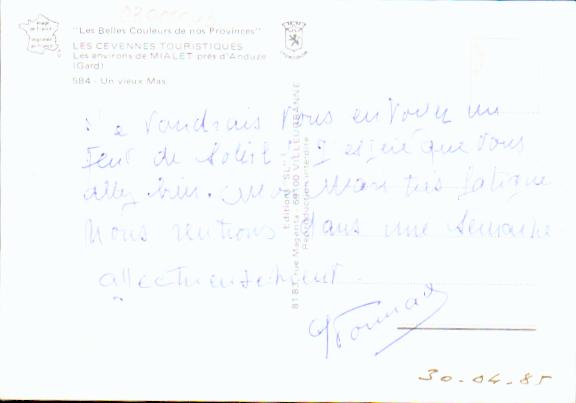 "Les Belles Couleurs de nos Provinces"
LES CEVENNES TOURISTIQUES
Les environs de MIALET près d'Anduze
(Gard)
584 - Un vieux Mas.
Je voudrais vous envoyer un
peu de soleil ! J'espère que vous
allez bien. Mari très fatigué
Nous rentrons dans une semaine.
affectueusement.
Editions "SL"
81 83, rue Magenta - 69100 VILLEURBANNE
Reproduction interdite
30-04-85